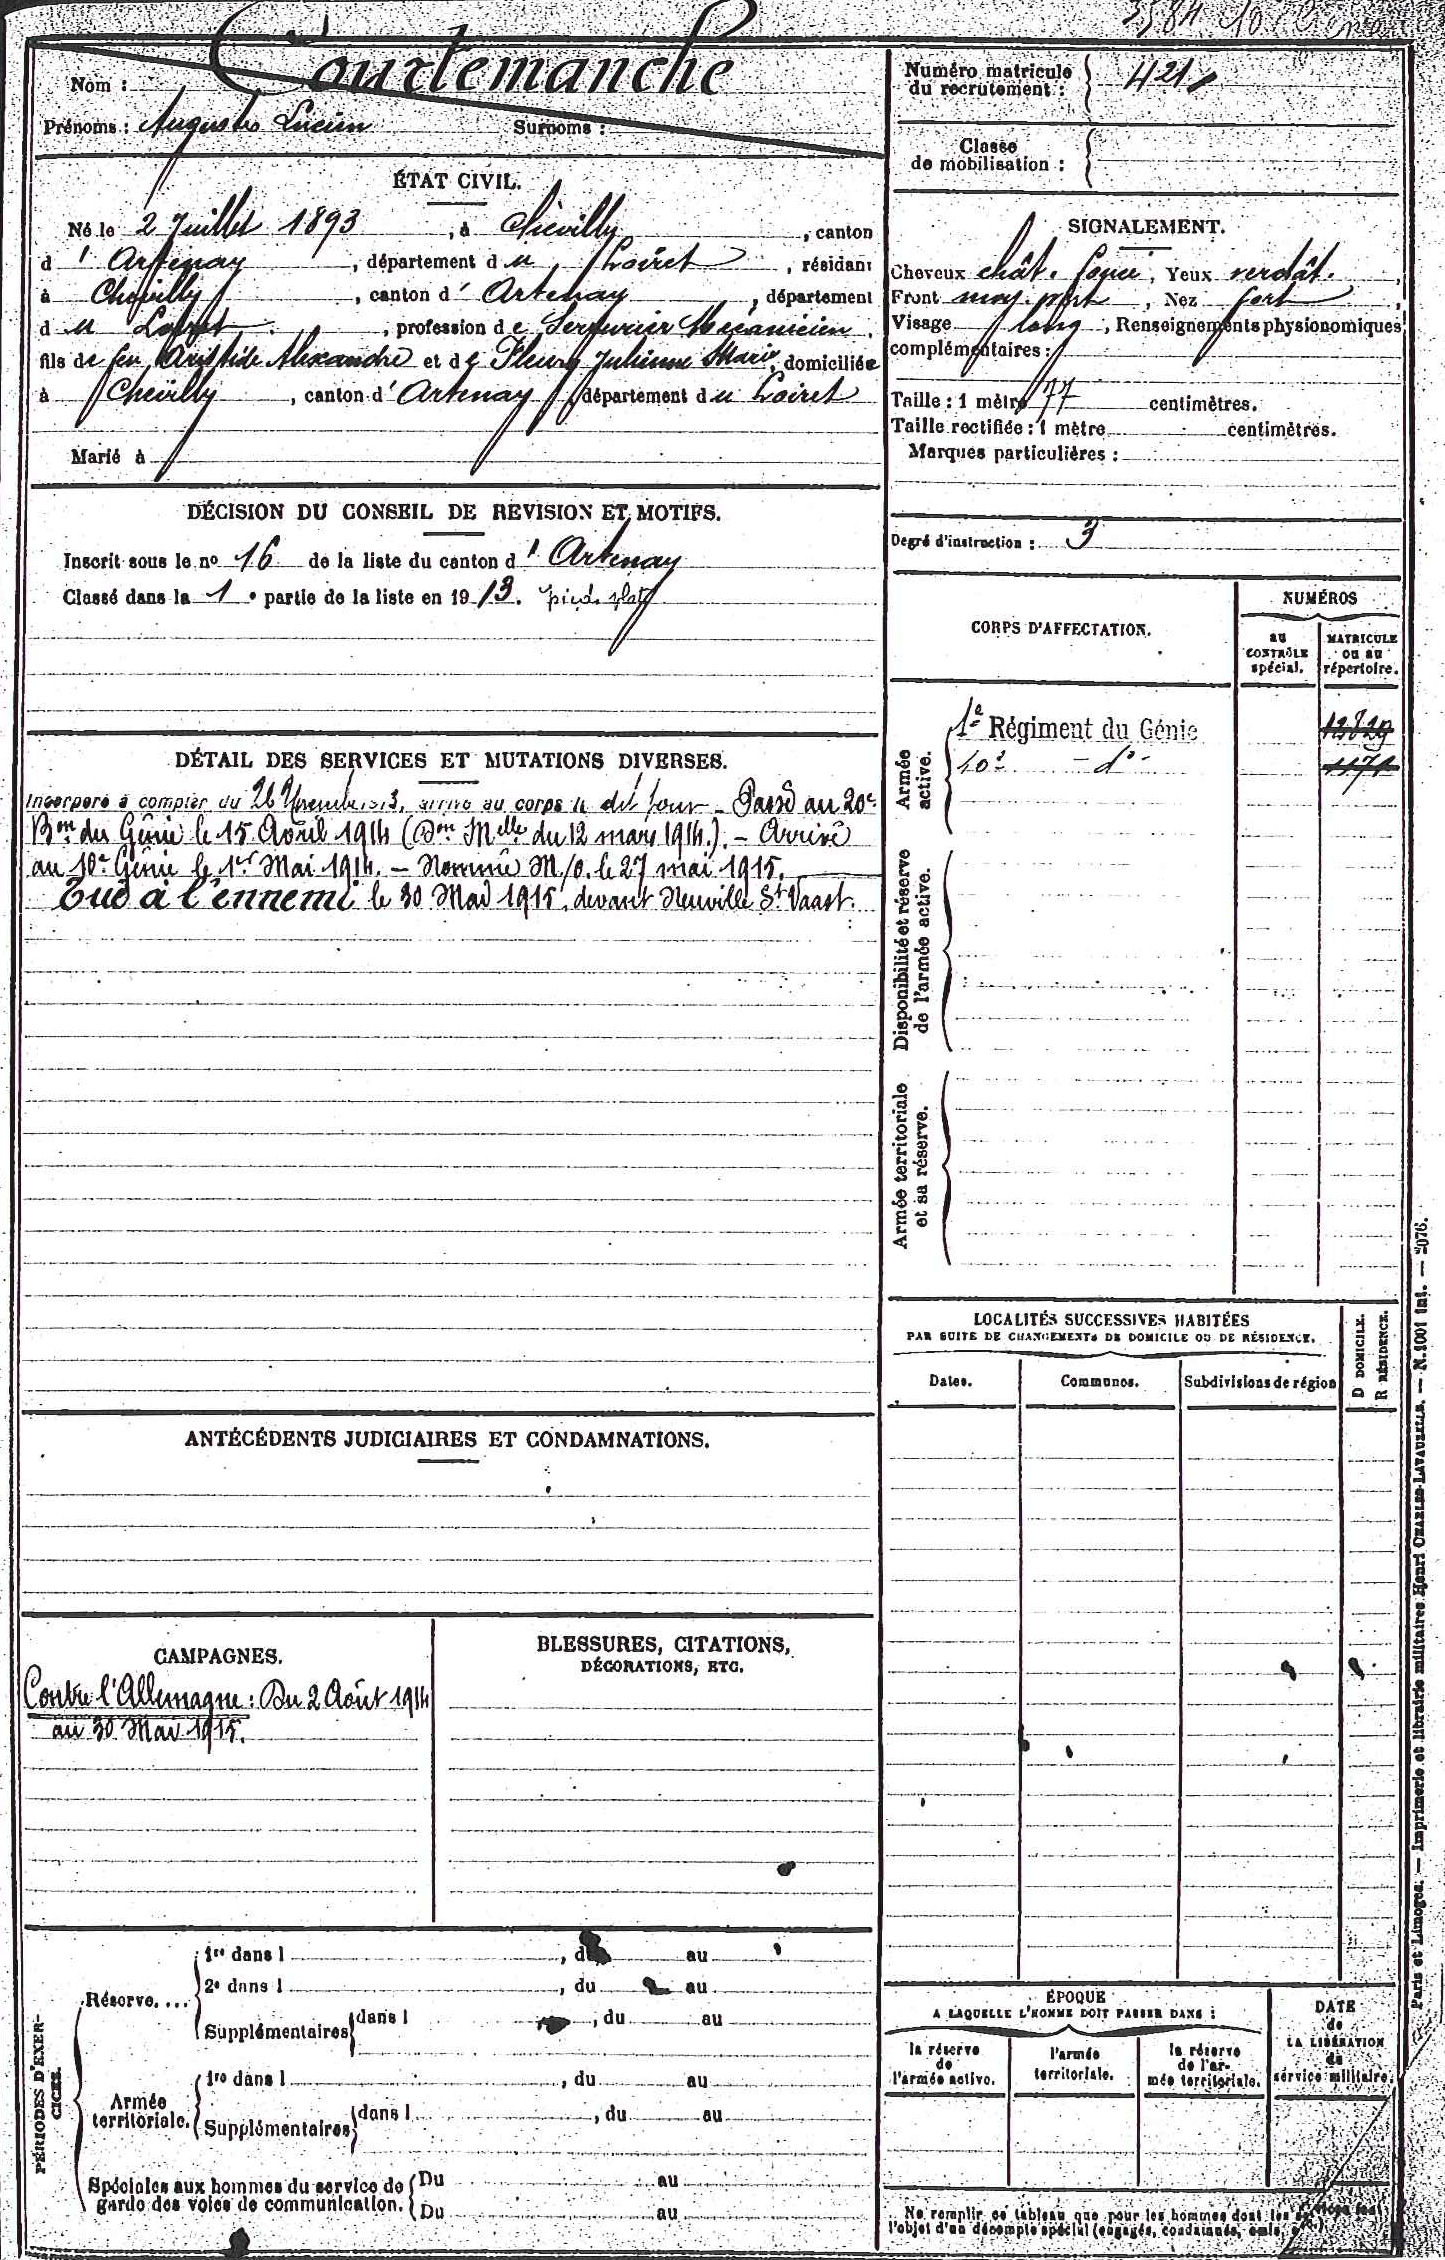 Nom : Courtemanche
Prénoms : Auguste Lucien Surnoms :
ÉTAT CIVIL.
Né le 2 Juillet 1893, à Chevilly, canton
d'Artenay, département du Loiret, résidant
à Chevilly, canton d'Artenay, département
du Loiret, profession de Serrurier Mécanicien,
fils de feu Aristide Alexandre et de Fleury Julienne Marie, domiciliée
à Chevilly, canton d'Artenay, département du Loiret
Marié à
DÉCISION DU CONSEIL DE REVISION ET MOTIFS.
Inscrit sous le no 16 de la liste du canton d'Artenay
Classé dans la 1e partie de la liste en 1913. pieds plats
DÉTAIL DES SERVICES ET MUTATIONS DIVERSES.
Incorporé à compter du 26 Novembre 1913, arrivé au corps le dit jour - Passé au 20e
Bon du Génie le 15 Avril 1914 (Don Melle du 12 mars 1914). - Arrivé
au 10e Génie le 1er Mai 1914. - Nommé M/o. le 27 mai 1915.
Tué à l'ennemi le 30 Mai 1915, devant Neuville St Vaast.
ANTÉCÉDENTS JUDICIAIRES ET CONDAMNATIONS.
CAMPAGNES.
Contre l'Allemagne : Du 2 Août 1914
au 30 Mai 1915.
BLESSURES, CITATIONS,
DÉCORATIONS, ETC.
PÉRIODES D'EXER-
CICES.
Réserve....
1re dans l , du au
2e dans l , du au
Supplémentaires dans l , du au
Armée
territoriale.
1re dans l , du au
Supplémentaires dans l , du au
Spéciales aux hommes du service de
garde des voies de communication.
Du au
Du au
Numéro matricule
du recrutement : 421
Classe
de mobilisation :
SIGNALEMENT.
Cheveux chât. foncé, Yeux verdât.,
Front moy., Nez fort,
Visage long, Renseignements physionomiques
complémentaires :
Taille : 1 mètre 77 centimètres.
Taille rectifiée : 1 mètre centimètres.
Marques particulières :
Degré d'instruction : 3
CORPS D'AFFECTATION.
NUMÉROS
AU
CONTRÔLE
spécial.
MATRICULE
OU AU
répertoire.
Armée
active.
1e Régiment du Génie 12829
10e - do -
Disponibilité et réserve
de l'armée active.
Armée territoriale
et sa réserve.
LOCALITÉS SUCCESSIVES HABITÉES
PAR SUITE DE CHANGEMENTS DE DOMICILE OU DE RÉSIDENCE.
Dates.
Communes.
Subdivisions de région
D DOMICILE.
R RÉSIDENCE.
ÉPOQUE
A LAQUELLE L'HOMME DOIT PASSER DANS :
la réserve
de
l'armée active.
l'armée
territoriale.
la réserve
de l'ar-
mée territoriale.
DATE
de
LA LIBÉRATION
du
service militaire.
Ne remplir ce tableau que pour les hommes dont les services font
l'objet d'un décompte spécial (engagés, condamnés, omis, etc.)
Paris et Limoges. — Imprimerie et librairie militaires Henri CHARLES-LAVAUZELLE. — N. 1001 int. —